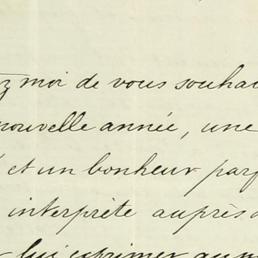 z moi de vous souhai
nouvelle année, une
et un bonheur parf
interprète auprès d
lui exprimer au n